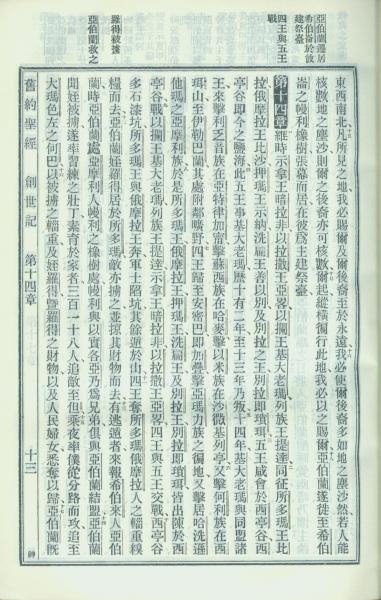 亞伯蘭遷居
希伯崙於彼
建祭臺
四王與五王
戰
羅得被擄
亞伯蘭救之
東西南北、凡所見之地、我必賜爾及爾後裔、至於永遠、我必使爾後裔多如地之塵沙、然若人能
核數地之塵沙、則爾之後裔亦可核數、爾起、縱橫徧行此地、我必以之賜爾、亞伯蘭遂徙至希伯
崙之幔利橡樹、張幕而居、在彼爲主建祭臺、
第十四章
維時示拿王暗拉非以拉撒王亞畧以攔王基大老瑪列族王提達、同征所多瑪王比
拉俄摩拉王比沙押瑪王示納洗扁王善以別及別拉之王別拉即瑣珥、五王咸會於西亭谷、西
亭谷即今之鹽海、此五王事基大老瑪歷十有二年、至十三年乃叛、十四年基大老瑪與同盟諸
王來擊利乏音族在亞特律加甯、擊蘇西族在哈麥、擊以米族在沙微基列亭、又擊何利族在西
珥山、至伊勒巴蘭、其處附鄰曠野、四王歸至安密巴即加疊、擊亞瑪力族之徧地、又擊居哈洗遜
他瑪之亞摩利族、於是所多瑪王俄摩拉王押瑪王洗扁王及別拉王、別拉即瑣珥、皆出陳於西
亭谷、戰以攔王基大老瑪列族王提達示拿王暗拉非以拉撒王亞畧、四王與五王交戰、西亭谷
多石漆坑、所多瑪王與俄摩拉王奔、軍士隕坑、其餘遁於山、四王奪所多瑪俄摩拉人之輜重糗
糧而去、亞伯蘭姪羅得居於所多瑪、敵亦擄之、並掠其財物而去、有逃遁者來報希伯來人亞伯
蘭、時亞伯蘭處亞摩利人幔利之橡樹處、幔利與以實各亞乃爲兄弟、俱與亞伯蘭結盟、亞伯蘭
聞姪被擄、遂率習練之壯丁、素育於家者、三百一十八人、追敵至但、乘夜率僕從分路而攻、追至
大瑪色左之何巴、以被擄之輜重及姪羅得曁羅得之財物、以及人民婦女、悉奪以歸、亞伯蘭旣
舊約聖經 創世記 第十四章 十三